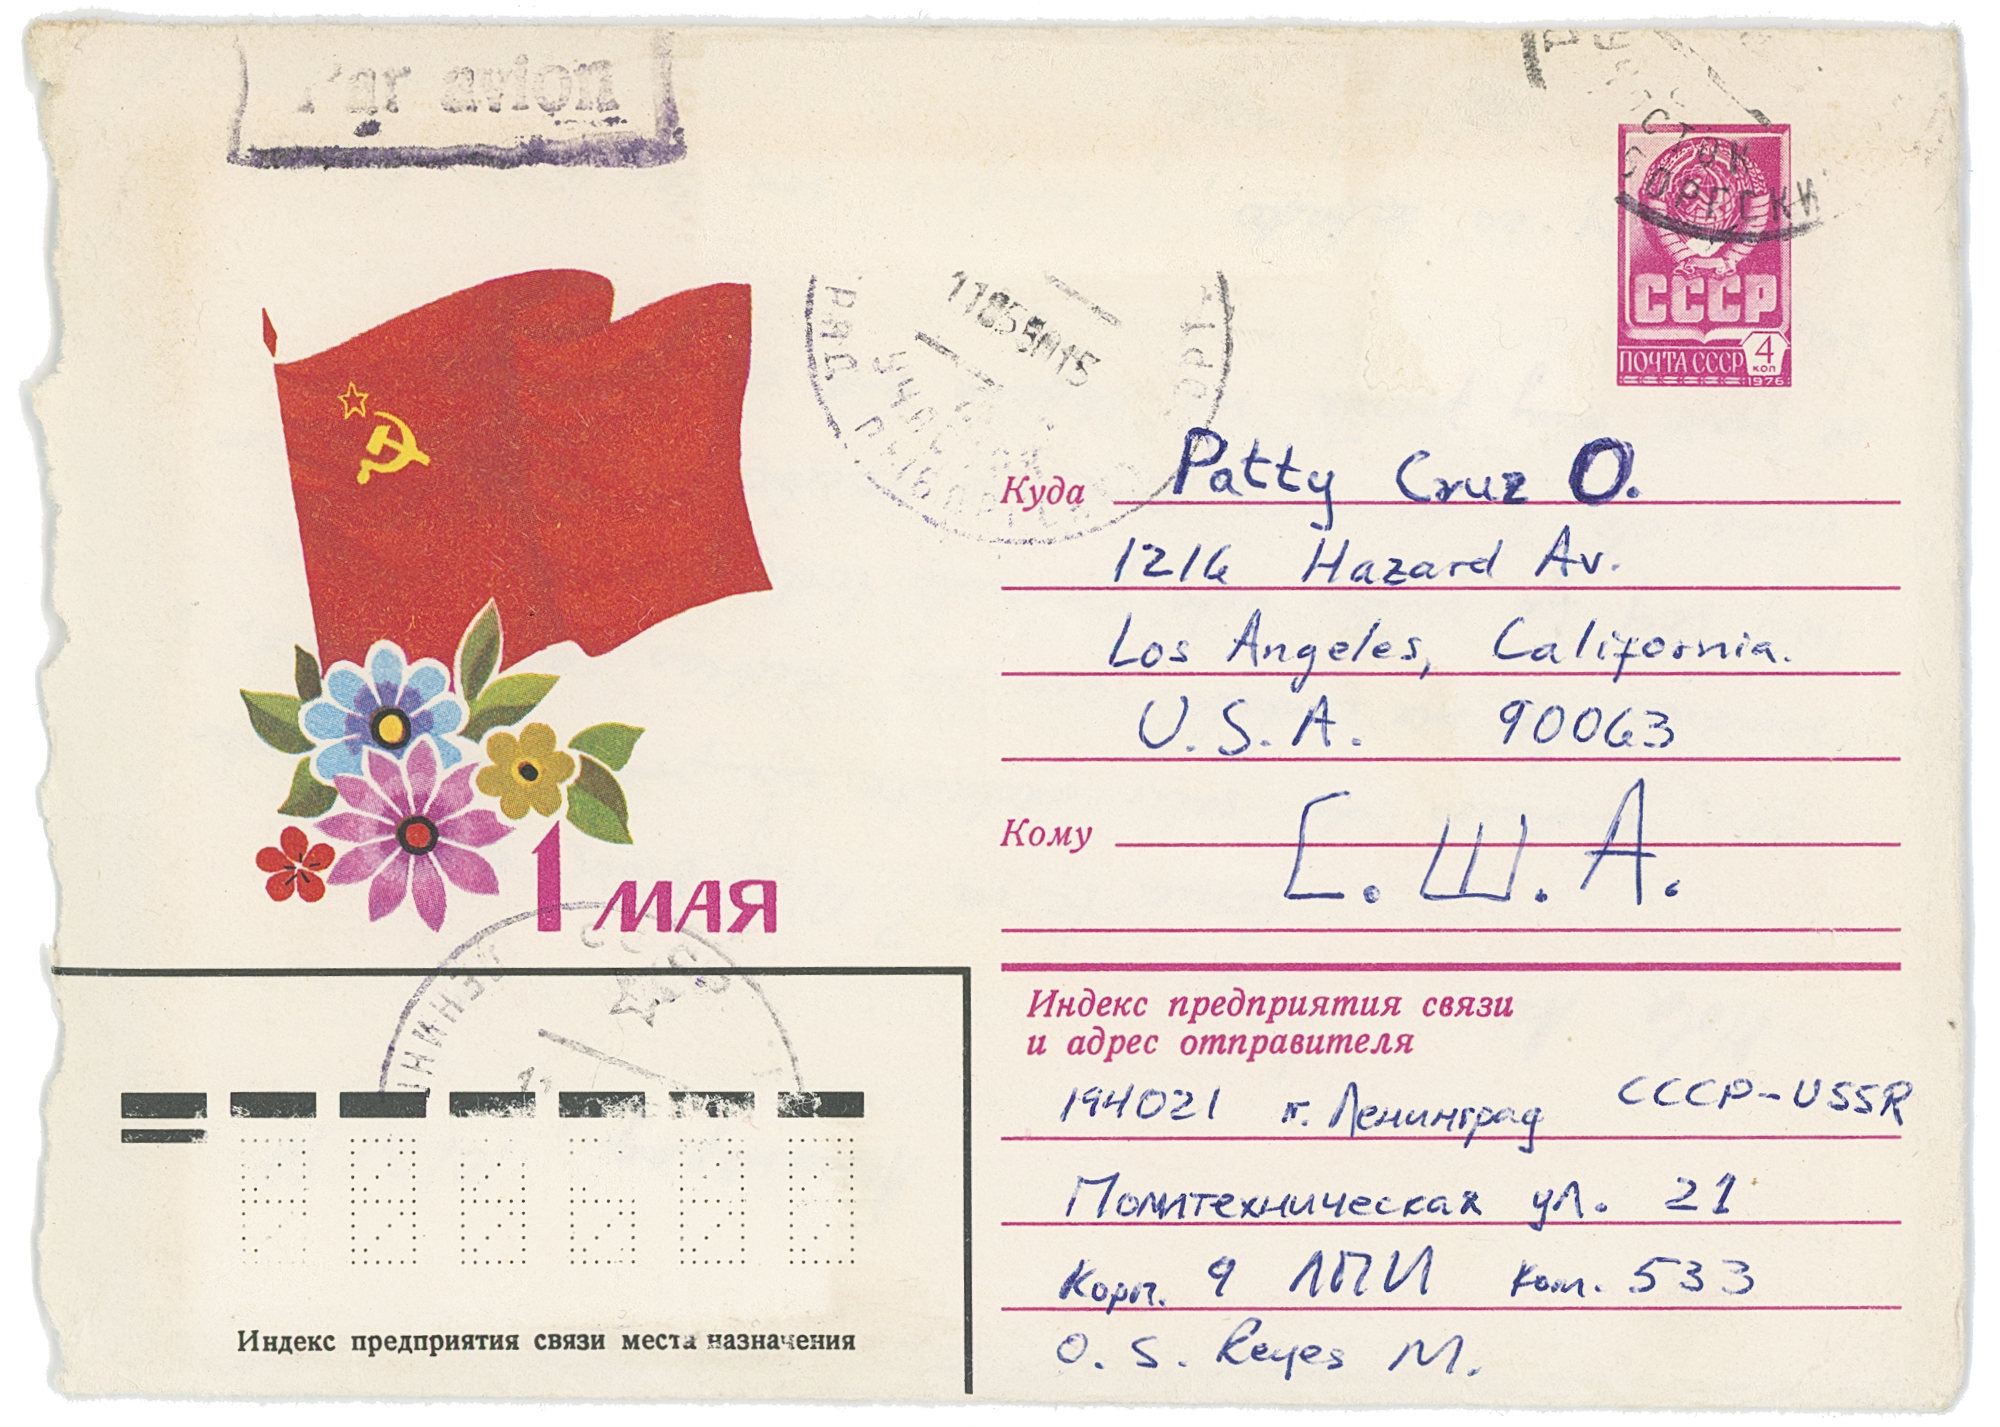 Par avion
СССР
ПОЧТА СССР 4
коп
1976
11 05 80 15
Куда Patty Cruz O.
1216 Hazard Av.
Los Angeles, California.
U.S.A. 90063
Кому С.Ш.А.
1 МАЯ
Индекс предприятия связи
и адрес отправителя
194021 г. Ленинград СССР-USSR
Политехническая ул. 21
Корп. 9 ЛПИ Ком. 533
O. S. Reyes M.
Индекс предприятия связи места назначения